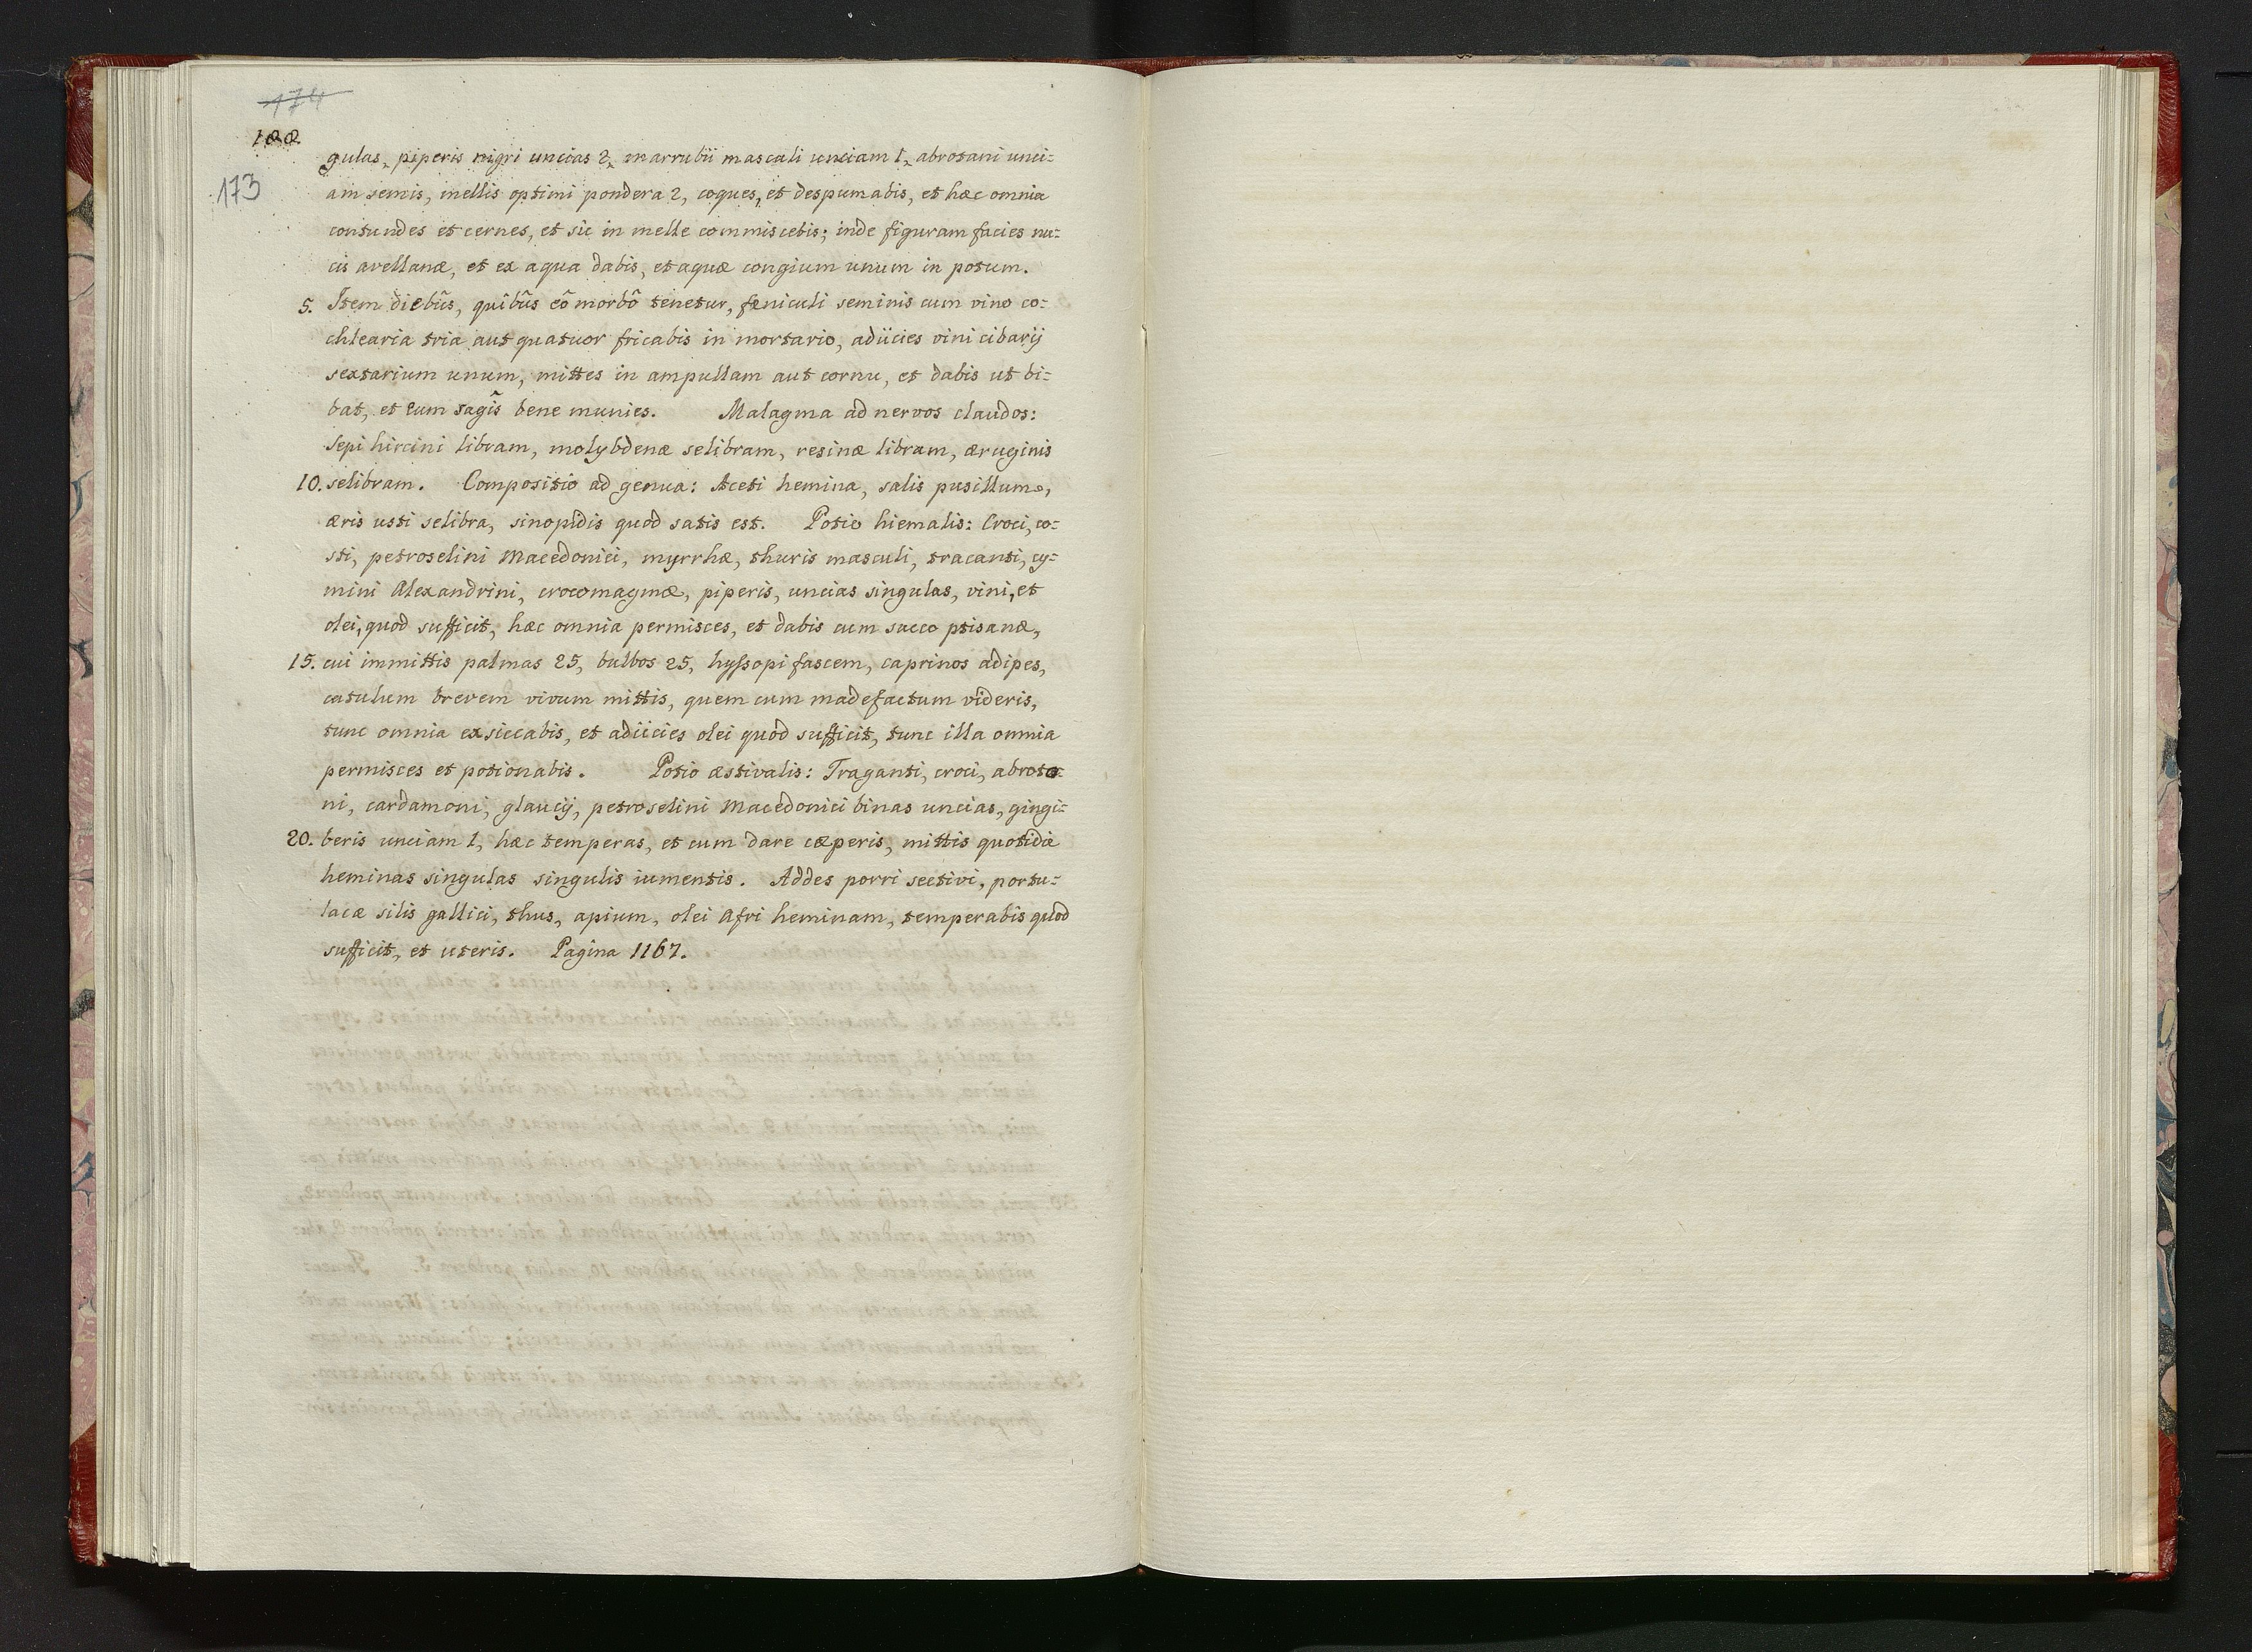 174
188
173
gulas, piperis nigri uncias 2, marrubii masculi unciam 1, abrotani unci=
am semis, mellis optimi pondera 2, coques, et despumabis, et hæc omnia
contundes et cernes, et sic in melle commiscebis; inde figuram facies nu=
cis avellanæ, et ex aqua dabis, et aquæ congium unum in potum.
5. Item diebus, quibus eô morbô tenetur, fæniculi seminis cum vino co=
chlearia tria aut quatuor fricabis in mortario, adiicies vini cibarij
sextarium unum, mittes in ampullam aut cornu, et dabis ut bi=
bat, et eum sagis bene munies. Malagma ad nervos claudos:
sepi hircini libram, molybdenæ selibram, resinæ libram, æruginis
10. selibram. Compositio ad genua: Aceti hemina, salis pusillum,
æris usti selibra, sinopidis quod satis est. Potio hiemalis: Croci, co=
sti, petroselini Macedonici, myrrhæ, thuris masculi, tracanti, cy=
mini Alexandrini, crocomagmæ, piperis, uncias singulas, vini, et
olei, quod sufficit, hæc omnia permisces, et dabis cum succo ptisanæ,
15. cui immittis palmas 25, bulbos 25, hyssopi fascem, caprinos adipes,
catulum brevem vivum mittis, quem cum madefactum videris,
tunc omnia exsiccabis, et adiicies olei quod sufficit, tunc illa omnia
permisces et potionabis. Potio æstivalis: Traganti, croci, abrota=
ni, cardamoni, glaucij, petroselini Macedonici binas uncias, gingi=
20. beris unciam 1, hæc temperas, et cum dare cæperis, mittis quotidie
heminas singulas singulis iumentis. Addes porri sectivi, portu=
lacæ silis gallici, thus, apium, olei Afri heminam, temperabis quod
sufficit, et uteris. Pagina 1167.